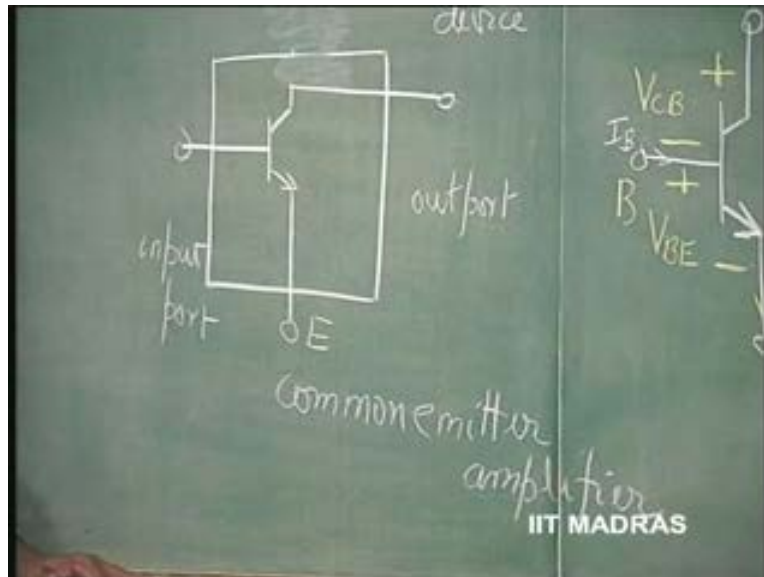 device
input
port
E
outport
common emitter
amplifier
VCB
+
IB
-
B
+
VBE
-
IIT MADRAS